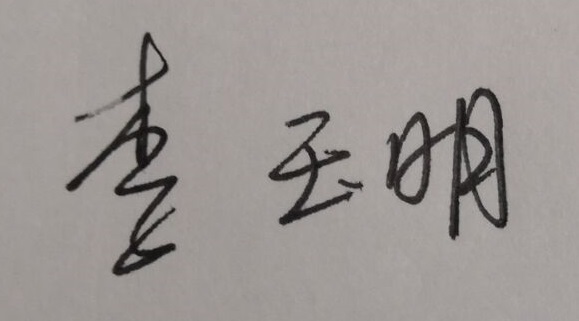 李玉明